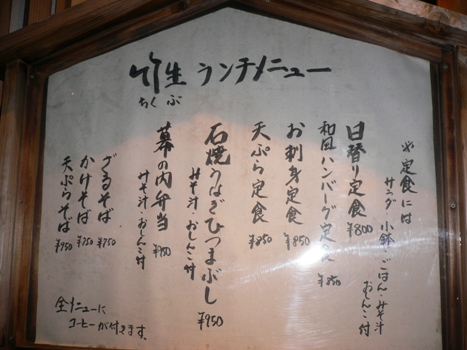 竹生 ランチメニュー
ちくぶ
※定食には
サラダ・小鉢・ごはん・みそ汁
おしんこ付
日替り定食 ¥800
和風ハンバーグ定食 ¥850
お刺身定食 ¥850
天ぷら定食 ¥850
石焼うなぎひつまぶし ¥950
みそ汁・おしんこ付
幕の内弁当 ¥900
みそ汁・おしんこ付
ざるそば ¥750
かけそば ¥750
天ぷらそば ¥950
全メニューに
コーヒーが付きます。